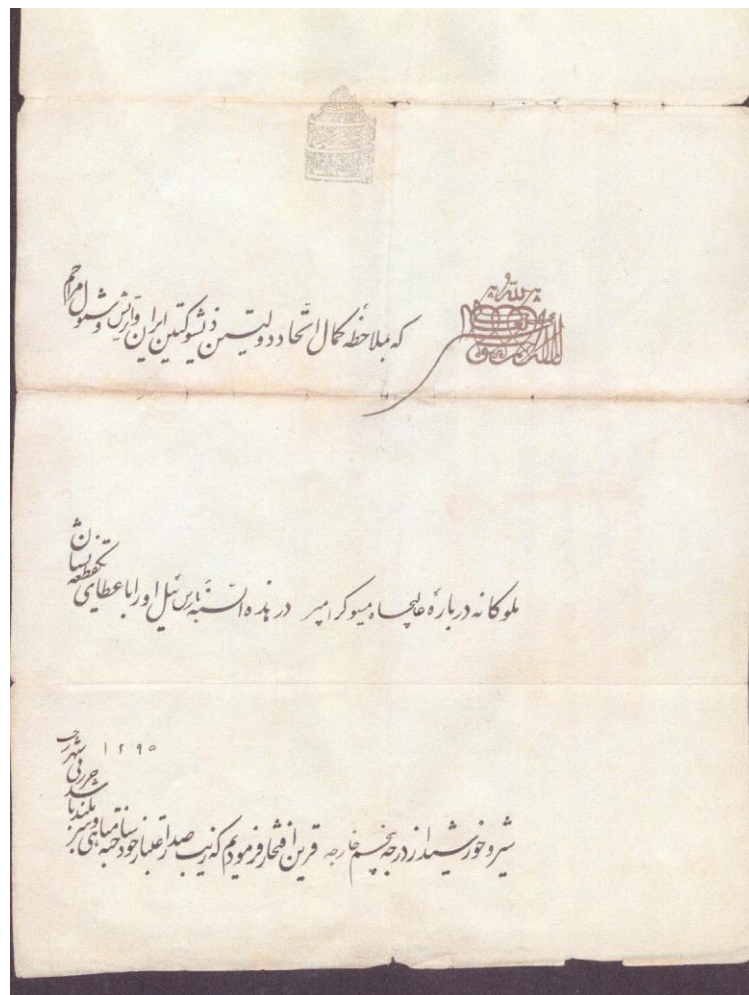 که بملاحظه کمال اتحاد دولتین ذیشوکتین ایران و شمول مراحم
ملوکانه درباره عالیجاه مسیو کرامپر در هذه السنه بارس ئیل او را با عطای یکقطعه نشان
شیر و خورشید از درجه پنجم خارجه قرین افتخار فرمودیم که زیب صدر اعتبار خود ساخته مباهی و سربلند باشد حرر فی شهر رجب ۱۲۹۵